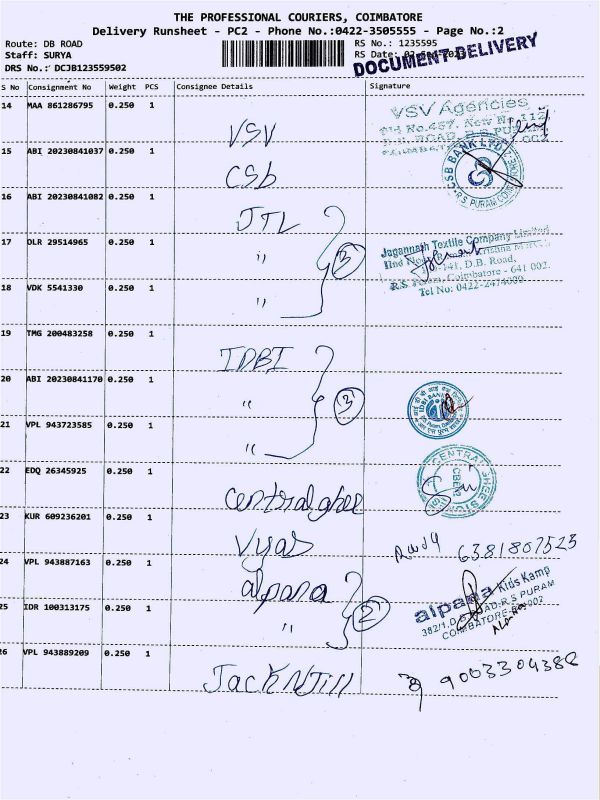 THE PROFESSIONAL COURIERS, COIMBATORE
Delivery Runsheet - PC2 - Phone No.:0422-3505555 - Page No.:2
Route: DB ROAD
RS No.: 1235595
Staff: SURYA
RS Date:
DRS No.: DCJB123559502
DOCUMENT DELIVERY
S No Consignment No Weight PCS Consignee Details Signature
14 MAA 861286795 0.250 1 VSV
VSV Agencies
15 ABI 20230841037 0.250 1 CSb
CSB BANK LTD
R.S PURAM
16 ABI 20230841082 0.250 1 JTL
17 DLR 29514965 0.250 1 "
3
Jagannath Textile Company Limited
D.B. Road,
R.S. Puram, Coimbatore - 641 002.
Tel No: 0422-2474000
18 VDK 5541330 0.250 1 "
19 TMG 200483258 0.250 1 IDBI
20 ABI 20230841170 0.250 1 "
3
IDBI BANK
21 VPL 943723585 0.250 1 "
22 EDQ 26345925 0.250 1 Centralghee
CENTRAL
CBE-2
23 KUR 609236201 0.250 1 Vyas
6381807523
24 VPL 943887163 0.250 1 alpana
25 IDR 100313175 0.250 1 "
2
alpana Kids Kamp
382/1, D.B. ROAD, R.S PURAM
COIMBATORE
26 VPL 943889209 0.250 1 Jack N Jill
9003304388